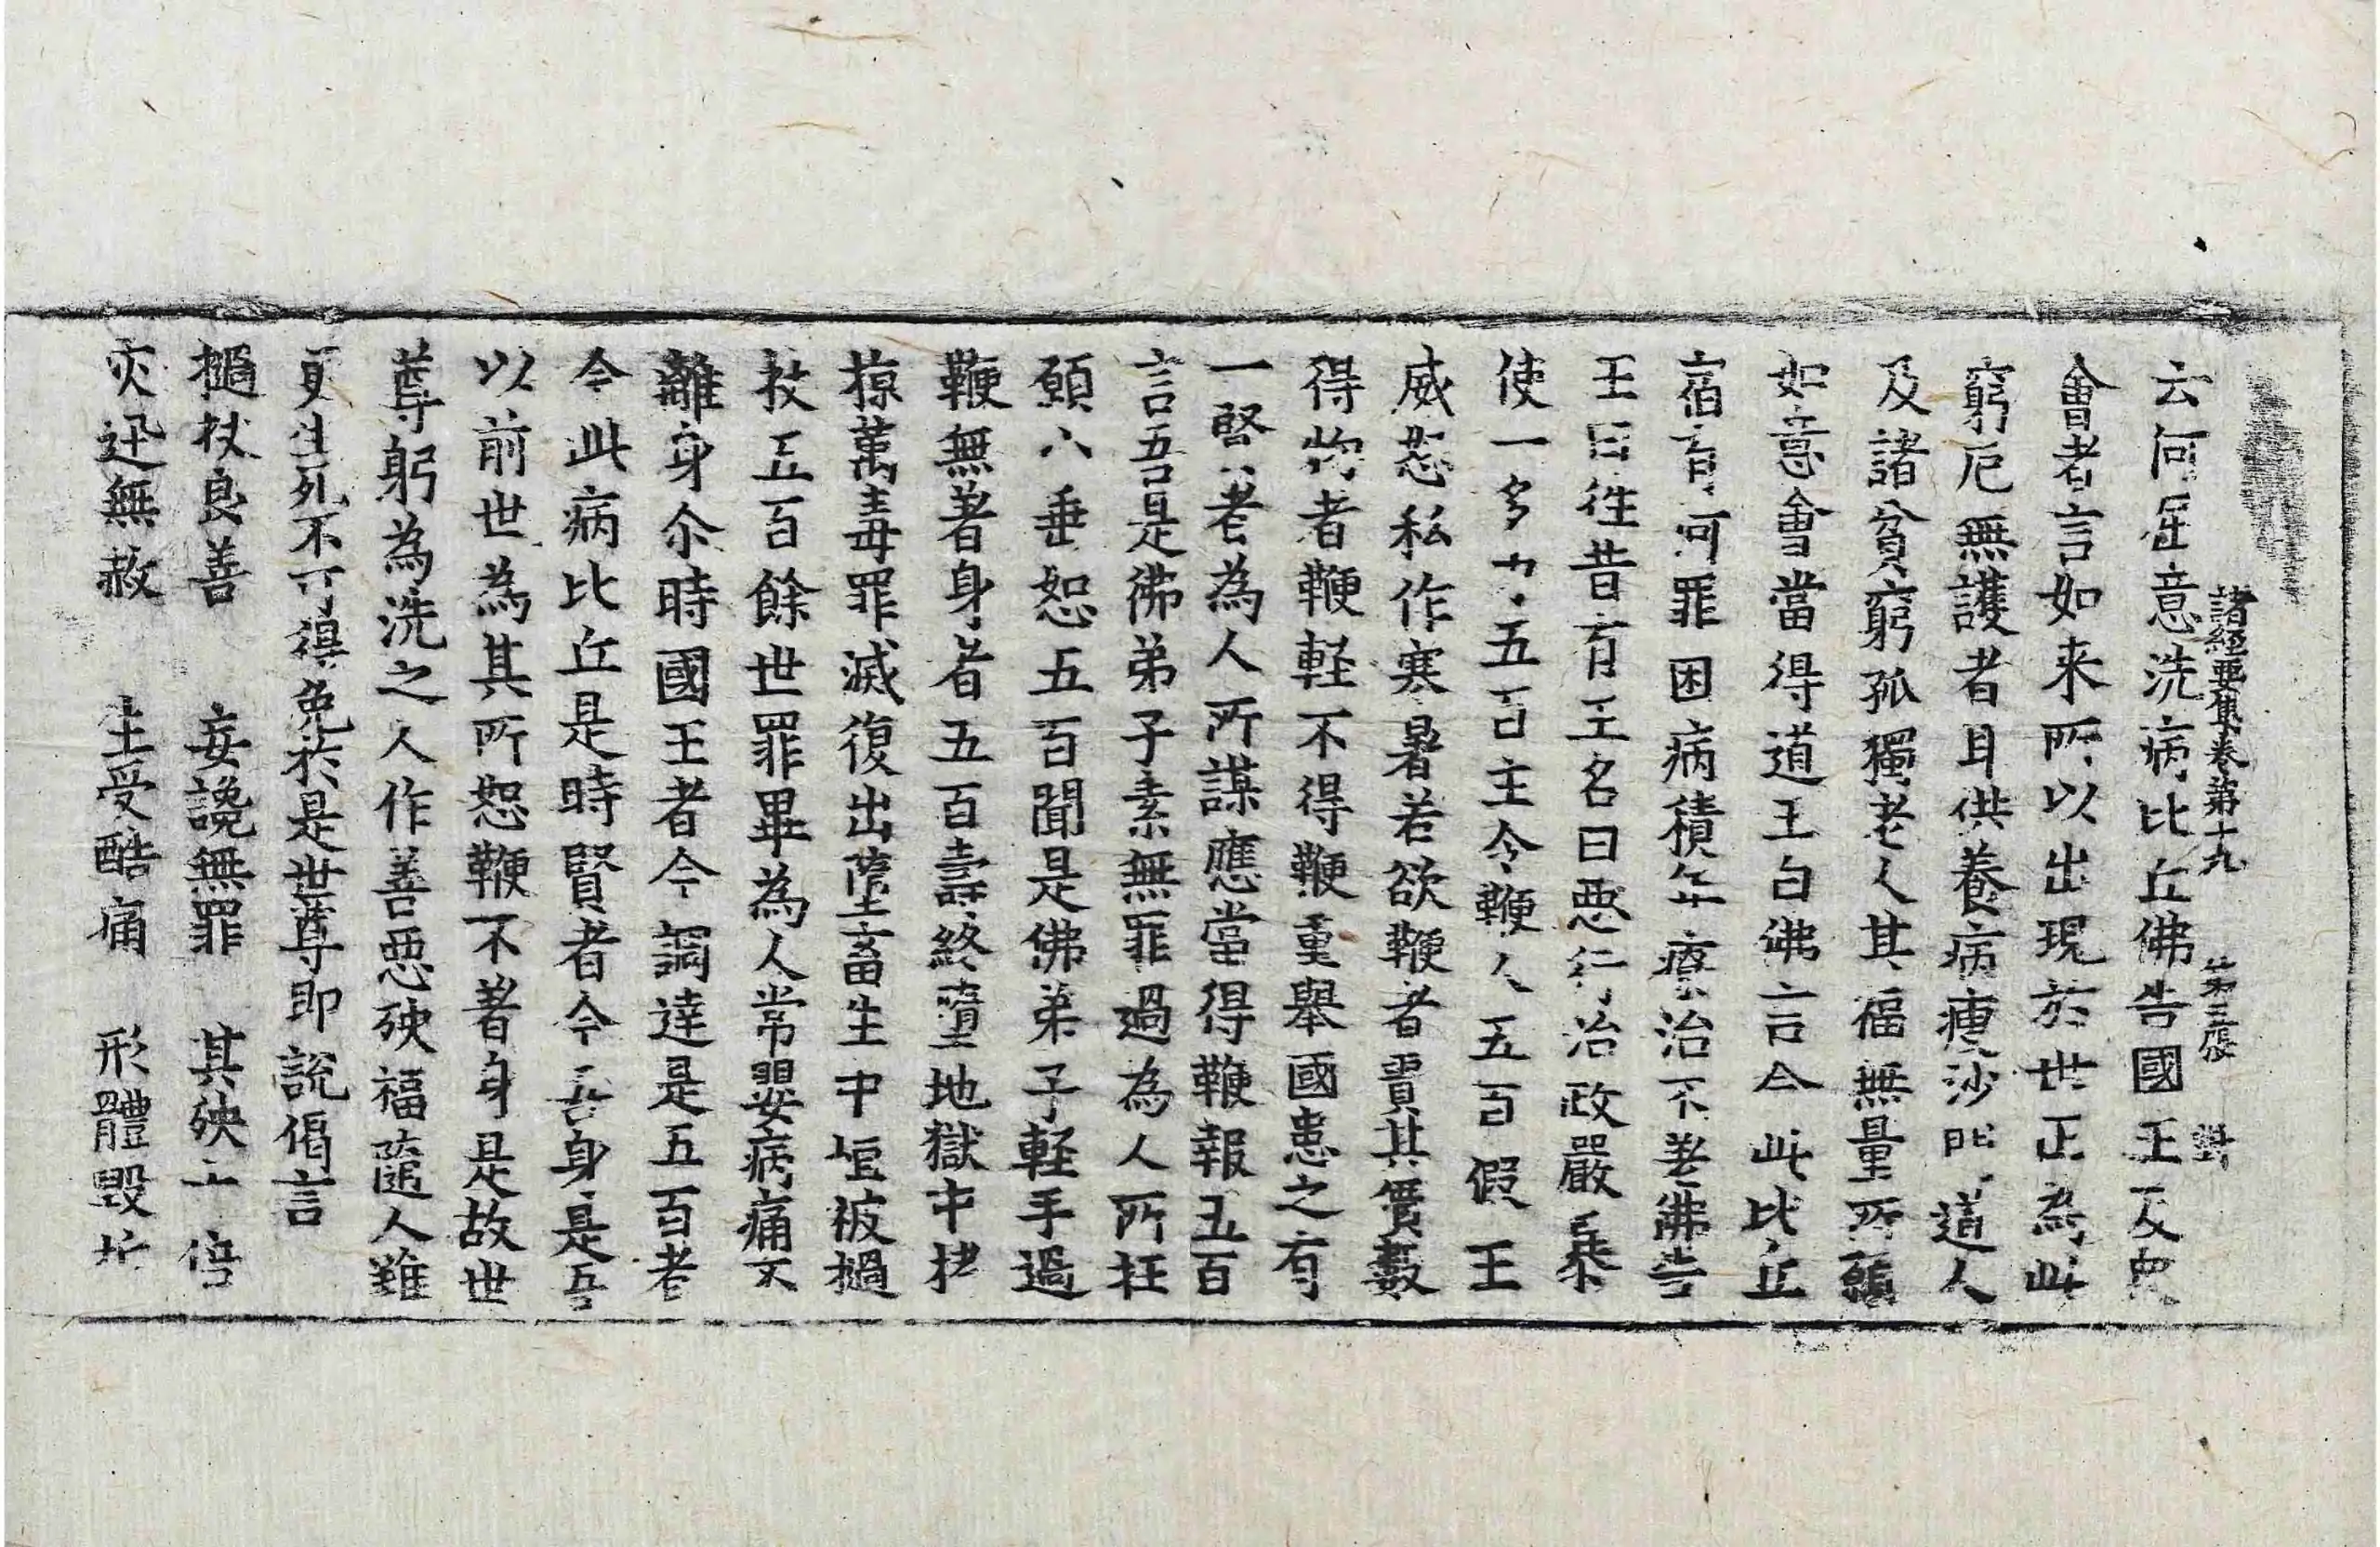 諸經要集卷第十九 第三張 對
云何屈意洗病比丘佛告國王及衆
會者言如来所以出現於世正為此
窮厄無護者耳供養病瘦沙門道人
及諸貧窮孤獨老人其福無量所願
如意會當得道王白佛言今此比丘
宿有何罪困病積年療治不差佛告
王曰往昔有王名曰惡行治政嚴暴
使一多力五百主令鞭人五百假王
威怒私作寒暑若欲鞭者責其實數
得物者鞭輕不得鞭重舉國患之有
一賢者為人所謀應當得鞭報五百
言吾是佛弟子素無罪過為人所枉
願小垂恕五百聞是佛弟子輕手過
鞭無著身者五百壽終墮地獄中拷
掠萬毒罪滅復出墮畜生中恒被撾
杖五百餘世罪畢為人常嬰病痛不
離身尒時國王者今調達是五百者
今此病比丘是時賢者今吾身是吾
以前世為其所恕鞭不著身是故世
尊躬為洗之人作善惡殃福隨人雖
更生死不可得免於是世尊即說偈言
撾杖良善 妄讒無罪 其殃十倍
灾迅無赦 生受酷痛 形體毀折